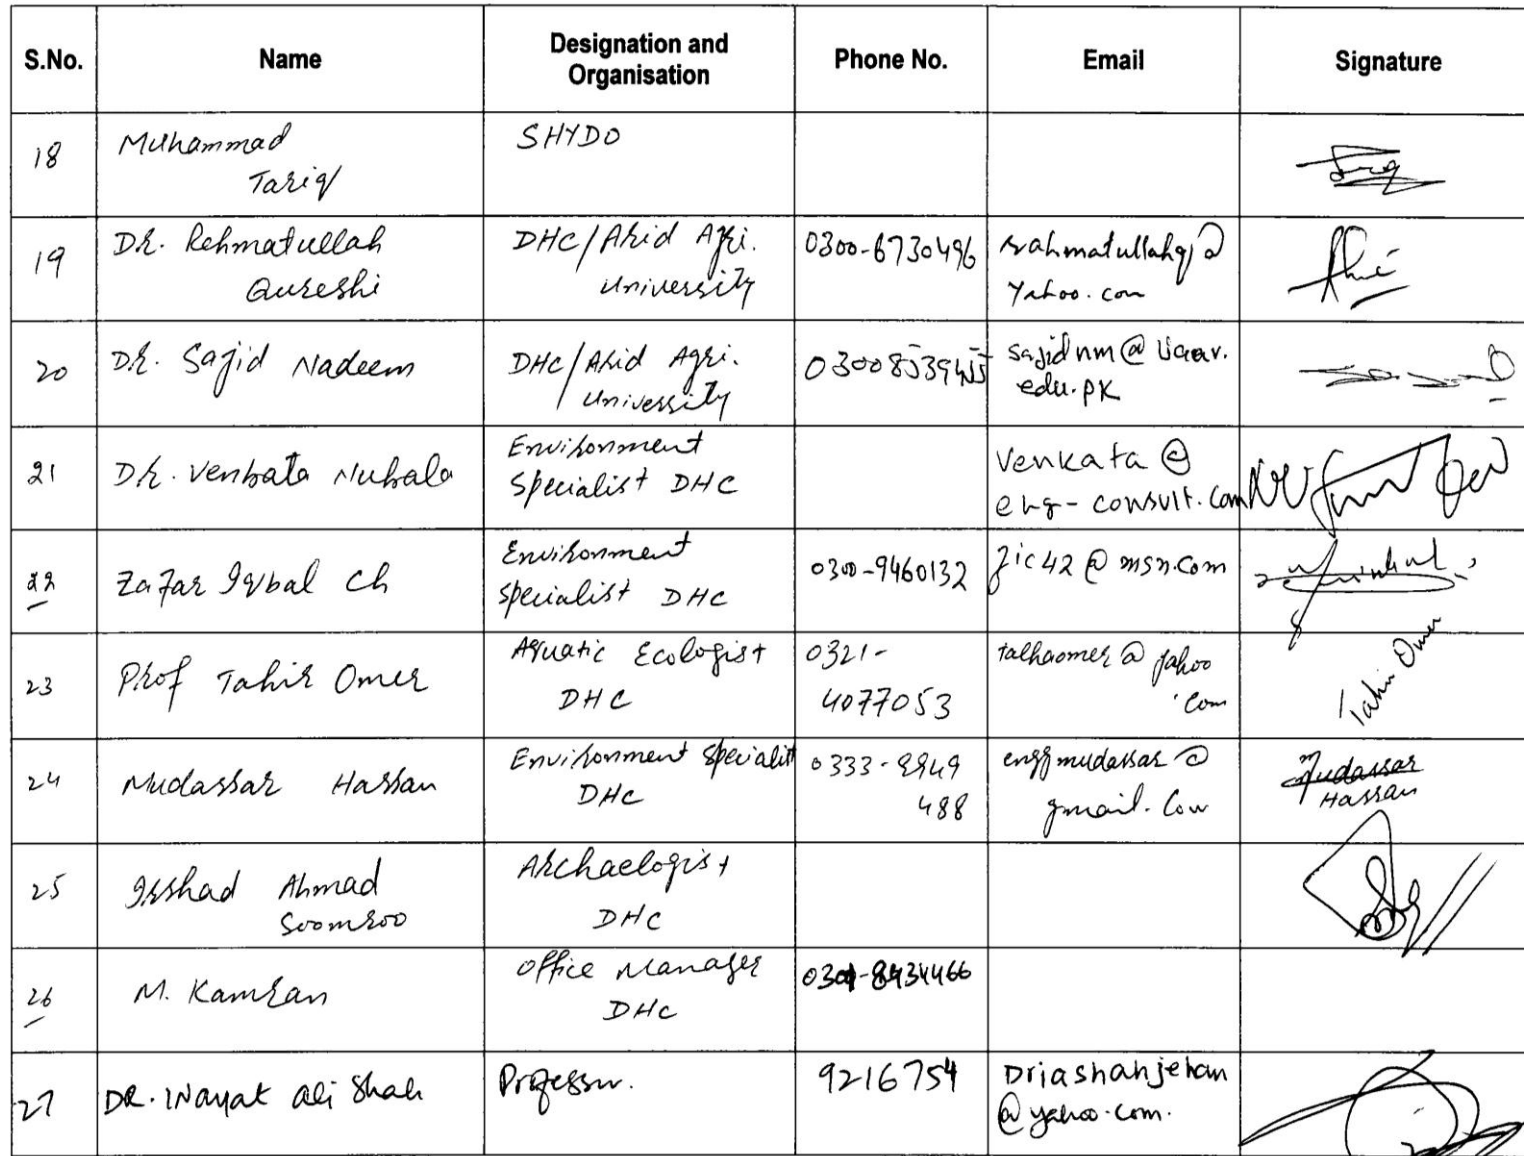 S.No. Name Designation and Organisation Phone No. Email Signature
18 Muhammad Tariq SHYDO
19 DR. Rehmatullah Qureshi DHC/Arid Agri. University 0300-6730496 @ Yahoo.com
20 DR. Sajid Nadeem DHC/Arid Agri. University sajidnm@ edu.pk
21 DR. Venkata Nukala Environment Specialist DHC Venkata@ eng-consult.com
22 Zafar Iqbal Ch Environment Specialist DHC 0300-9460132 zic42@msn.com
23 Prof Tahir Omer Aquatic Ecologist DHC 0321-4077053 talhaomer@yahoo.com Tahir Omer
24 Mudassar Hassan Environment Specialist DHC 0333- 488 enggmudassar@gmail.com Mudassar Hassan
25 Irshad Ahmad Soomroo Archaelogist DHC
26 M. Kamran Office Manager DHC
27 DR. Inayat Ali Shah Professor. 9216754 Driashahjehan @yahoo.com.